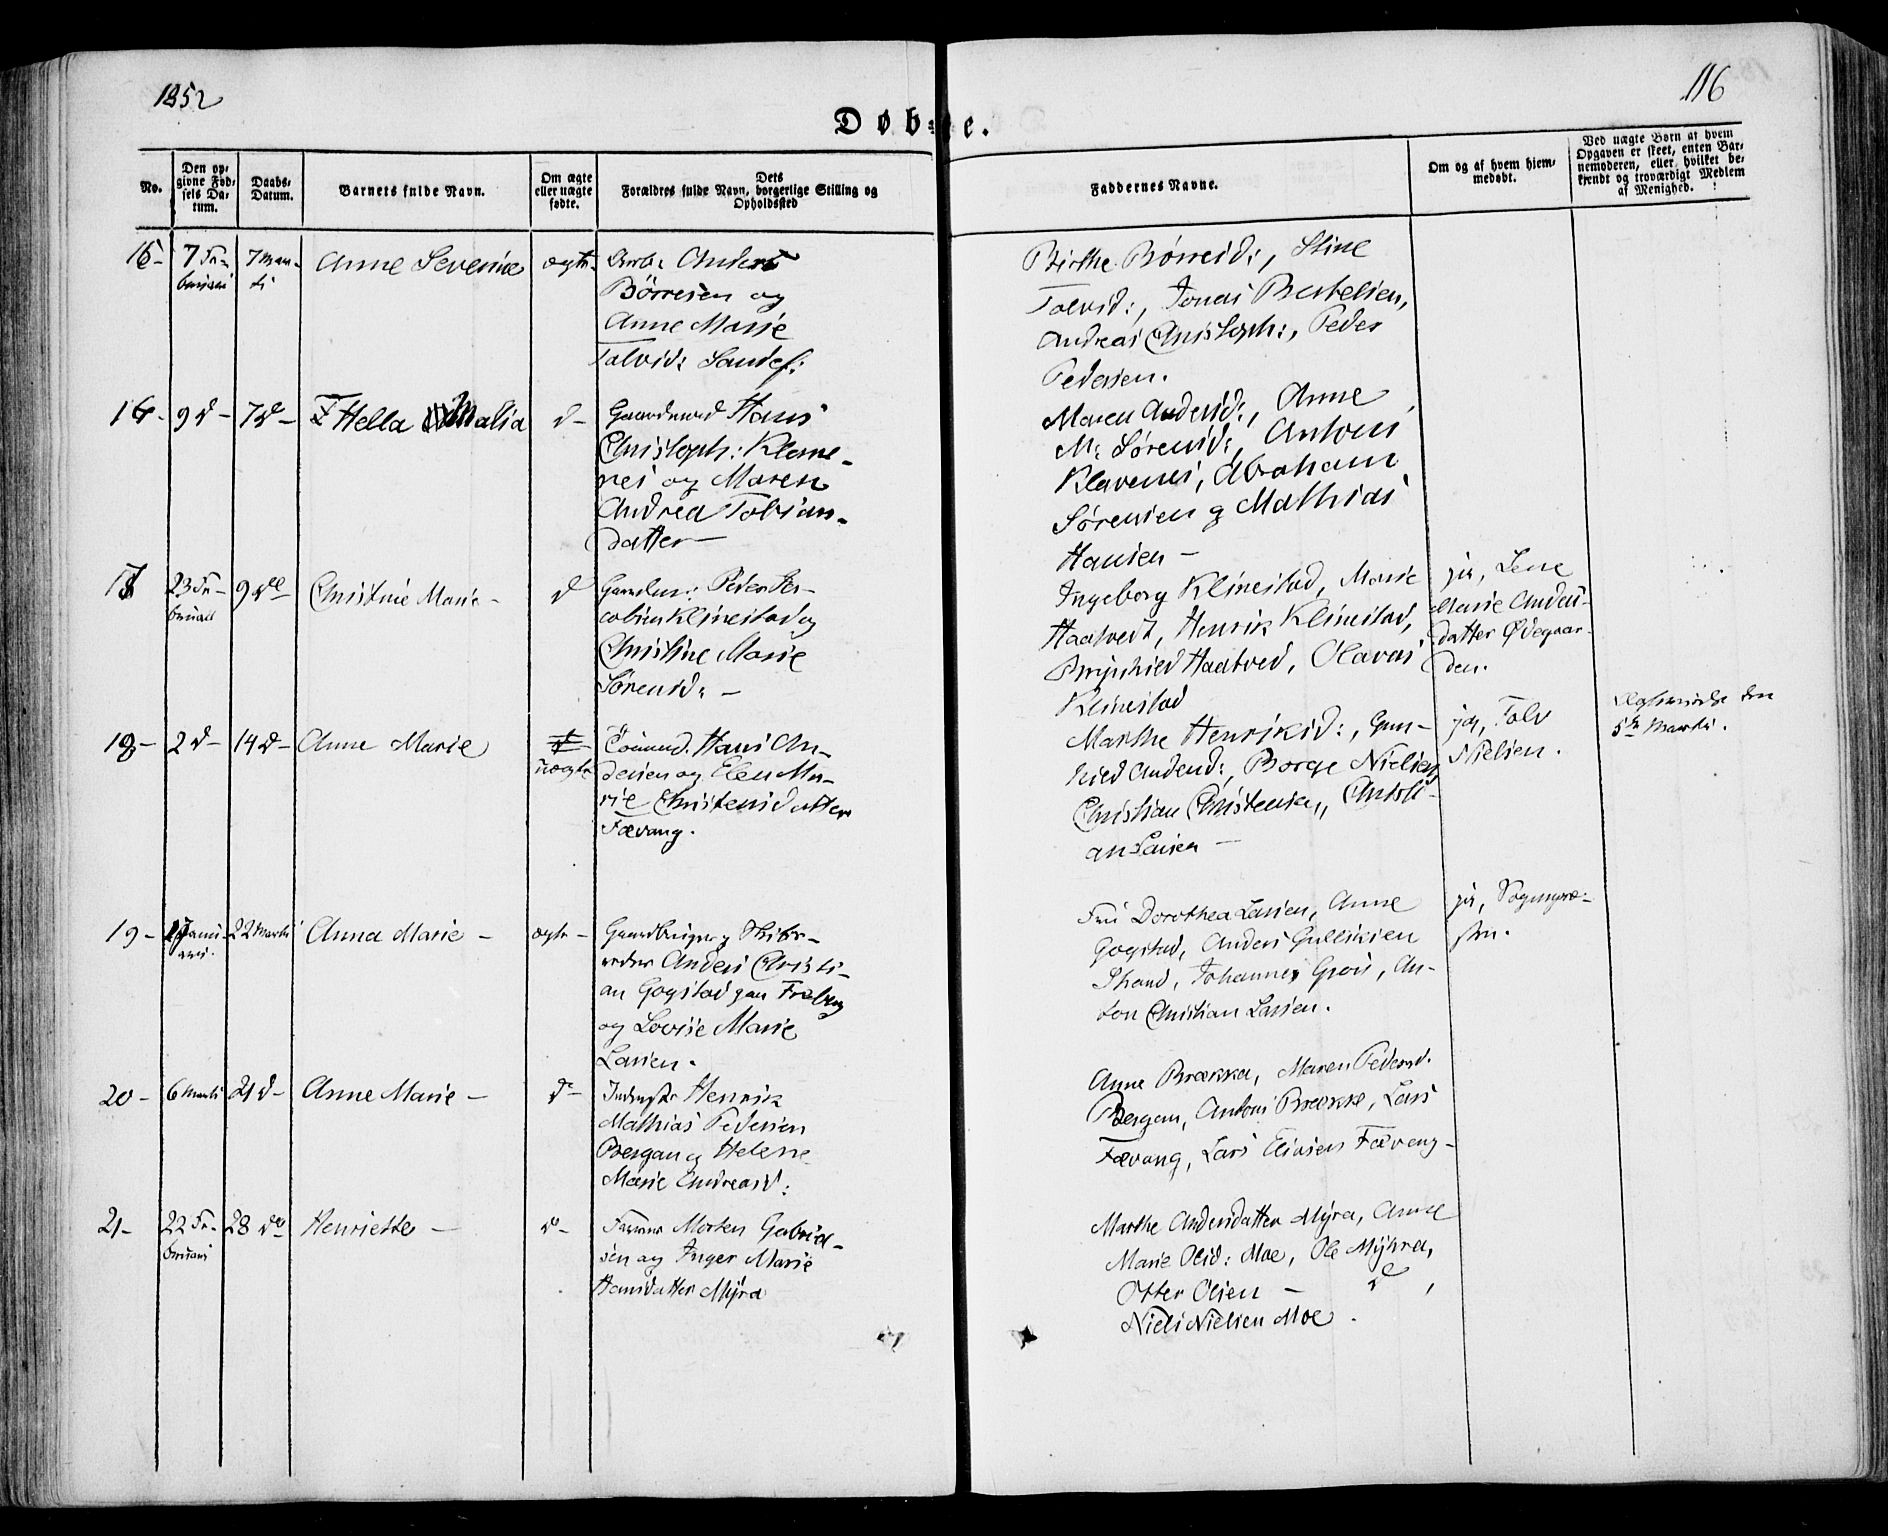 1852
116
Døbte.
No.
Den opgivne Fødsels Datum.
Daabs-Datum.
Barnets fulde Navn.
Om ægte eller uægte fødte.
Dets Forældres fulde Navn, borgerlige Stilling og Opholdssted
Faddernes Navne.
Om og af hvem hjemmedøbt.
Ved uægte Børn af hvem Opgaven er skeet, enten Barnemoderen, eller hvilket bekjendt og troværdigt Medlem af Menighed.
15-
7 Fe-
bruari
7 Mar-
ti
Anne Severine
ægte-
Anders
Børresen og
Anne Marie
Tolvsd: Sandef:
Birthe Børresd:, Stine
Tolvsd:, Jonas Bertelsen,
Andreas Christoph:, Peder
Pedersen.
16-
9 d-
7 d-
Thella Amalia
d-
Gaardmand Hans
Christoph: Klave-
nes og Maren
Andrea Tobias-
datter-
Maren Andersd:, Anne
M: Sørensd:, Antons
Klavenes, Abraham
Sørensen g Mathias
Hansen-
17
23 Fe-
bruari
9 de-
Christine Marie-
d
Gaardm: Peder Ja-
cobsen Klinestad og
Christine Marie
Sørensd: -
Ingeborg Klinestad, Marie
Haatvedt, Henrik Klinestad,
Brynhild Haatved, Olavas
Klinestad
ja, Lene
Marie Anders-
datter Ødegaar-
den.
18-
2 d-
14 d-
Anne Marie
uægte
Hans An-
dersen og Elen Ma-
rie Christensdatter
Fævang.
Marthe Henriksd:, Gun-
hild Andersd:, Borge Nielsen,
Christian Christensen, Christi-
an Larsen-
ja, Tolv
Nielsen.
den
5te Marti.
19-
Janu-
ari.
22 Marti
Anna Marie-
ægte-
Gaardbruger g Skibs-
reder Anders Christi-
an Gogstad paa Freberg
og Lovise Marie
Larsen.
Fru Dorothea Larsen, Anne
Gogstad, Anders Gulliksen
Strand, Johannes Grøn, An-
ton Christian Larsen.
ja, Sognepræ-
sten.
20-
6 Marti
21 d-
Anne Marie-
d-
Inderste Henrik
Mathias Pedersen
Bergan g Helene
Marie Andreasd:
Anne Brække, Maren Pedersd.
Bergan, Antons Brække, Lars
Fævang, Lars Eliasen Fævang-
21-
22 Fe-
bruari
28 de
Henriette-
d-
Morten Gabriel-
sen og Inger Marie
Hansdatter Mÿra
Marthe Andersdatter Mÿra, Anne
Marie Olsd: Moe, Ole Mÿhra,
Otter Olsen - d,
Niels Nielsen Moe.